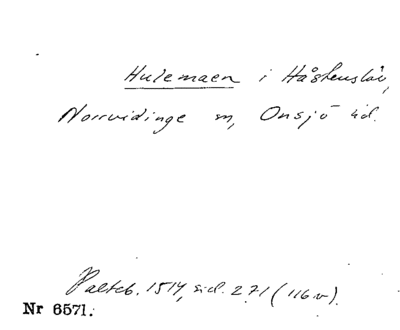 Hulemaen i Håstenslöv,
Norrvidinge sn, Onsjö hd.
Palteb. 1514, sid. 271 (116 v).
Nr 6571.